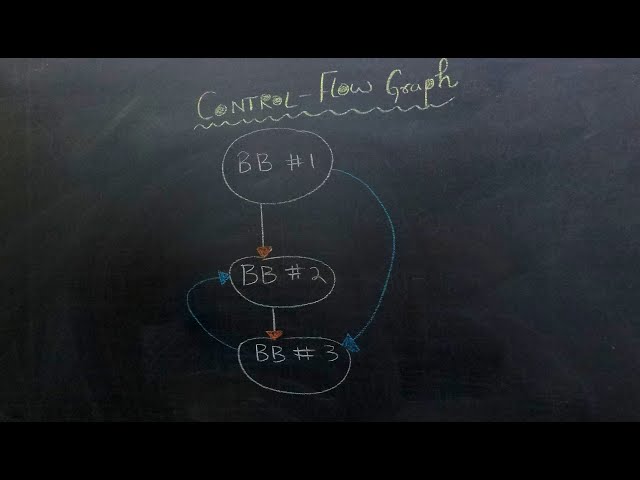 CONTROL-Flow Graph
BB #1
BB #2
BB #3